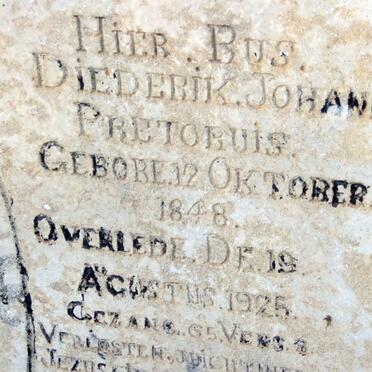 HIER. BUS.
DIEDERIK. JOHAN
PRETORUIS.
GEBORE 12 OKTOBER
1848.
OVERLEDE. DE. 19
AUGUSTUS 1925.
GEZANG. 65 VERS. 3
VERLOSTEN, JUICHT